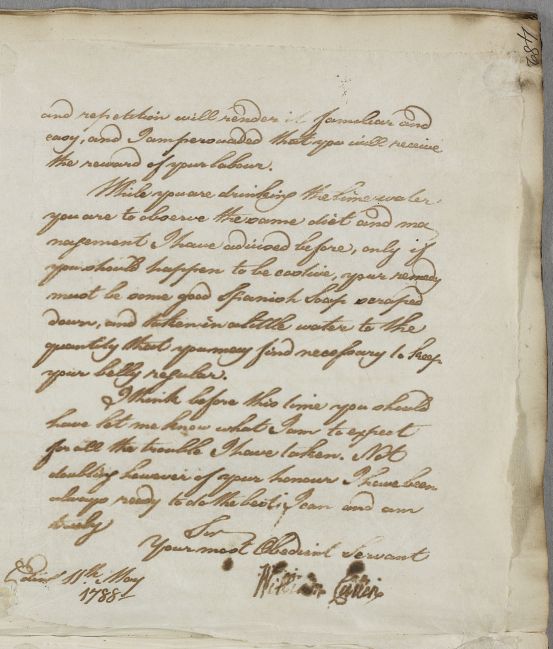 482
and repetition will render it familiar and
easy, and I am perswaded that you will receive
the reward of your labour.
While you are drinking the lime water
you are to observe the same diet and ma
nagement I have advised before, only if
you should happen to be costive, your remedy
must be some good Spanish Soap scraped
down, and taken in a little water to the
quantity that you may find necessary to keep
your belly regular.
I think before this time you should
have let me know what I am to expect
for all the trouble I have taken. Not
doubting however of your honour I have been
always ready to do the best I can and am
truly
Sir
Your most Obedient Servant
Edinr 11th May
1788
William Cullen